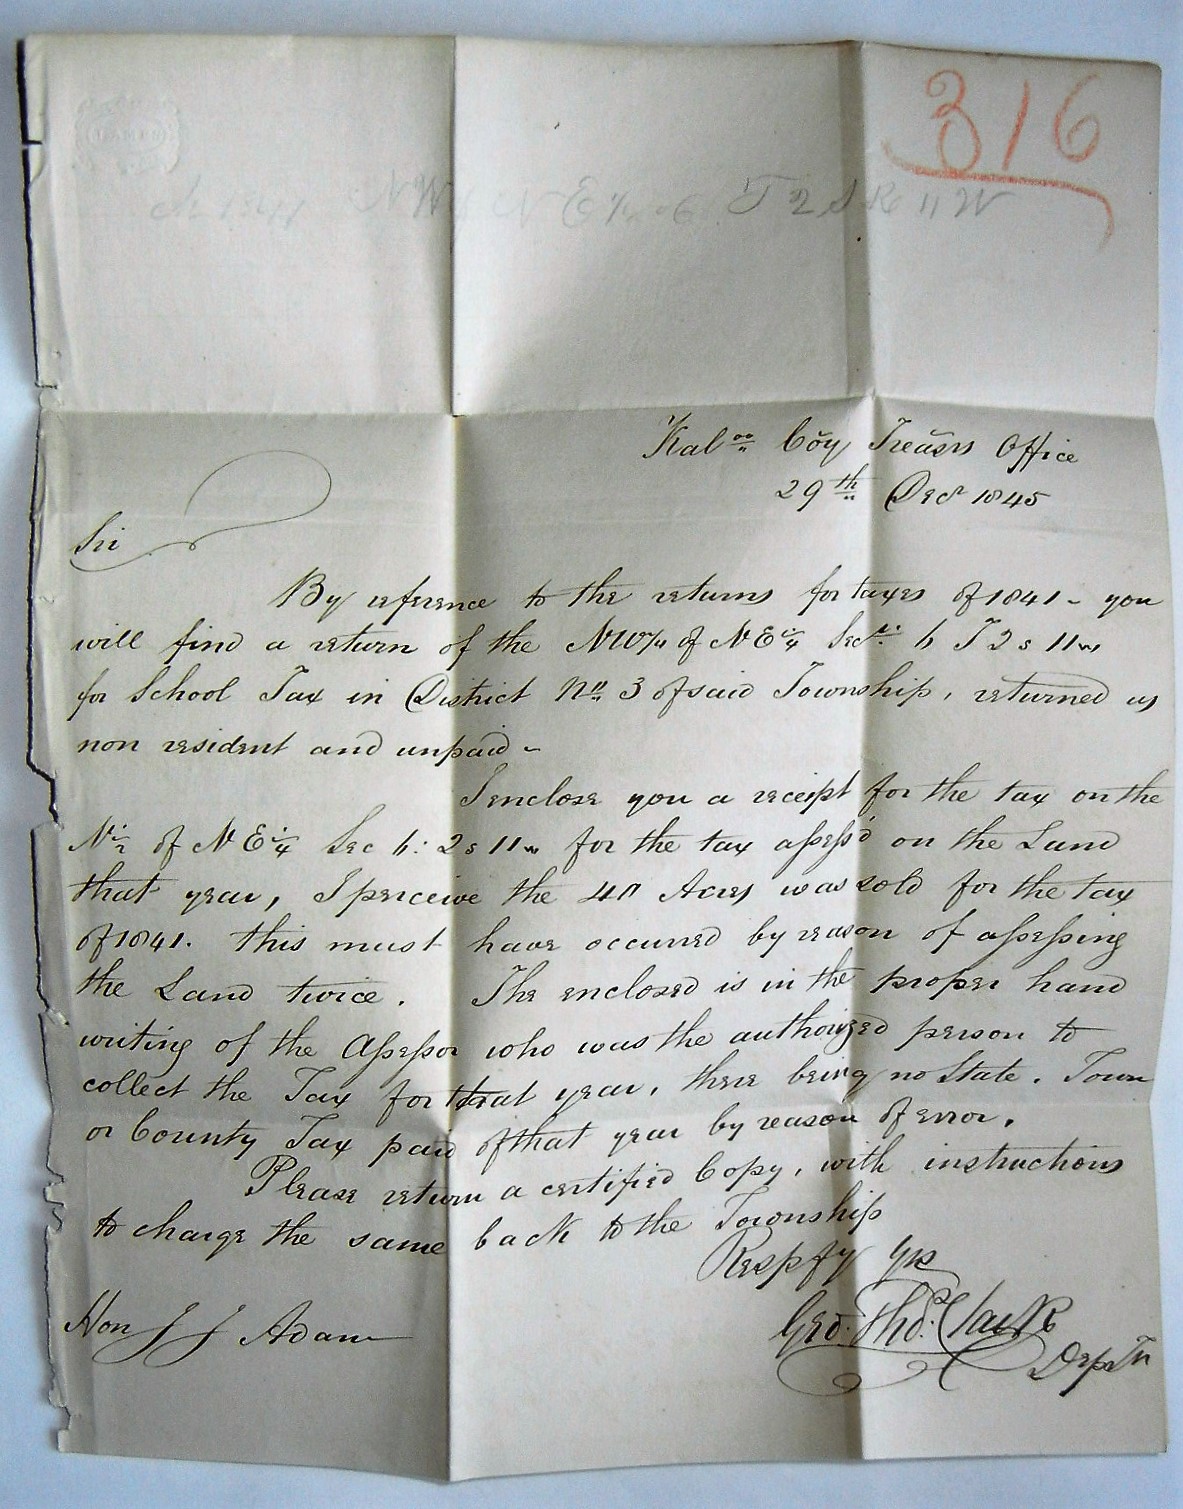 316
NW¼ NE¼ 6 T 2 S R 11 W
Kaloo Coy Treasrs Office
29th Decr 1845
Sir
By reference to the returns for taxes of 1841 - you
will find a return of the NW¼ of NE¼ Sect. 6 T 2 s 11 w
for School Tax in District No 3 of said Township, returned as
non resident and unpaid -
I enclose you a receipt for the tax on the
N½ of NE¼ Sec 6: 2 s 11 w for the tax assess'd on the Land
that year, I perceive the 40 Acres was sold for the tax
of 1841. this must have occurred by reason of assessing
the Land twice. The enclosed is in the proper hand
writing of the Assessor who was the authorized person to
collect the Tax for that year, there being no State. Town
or County Tax paid of that year by reason of error.
Please return a certified Copy, with instructions
to charge the same back to the Township
Respfy Yrs
Geo: Thos. Clark
Dep Tr
Hon J J Adam